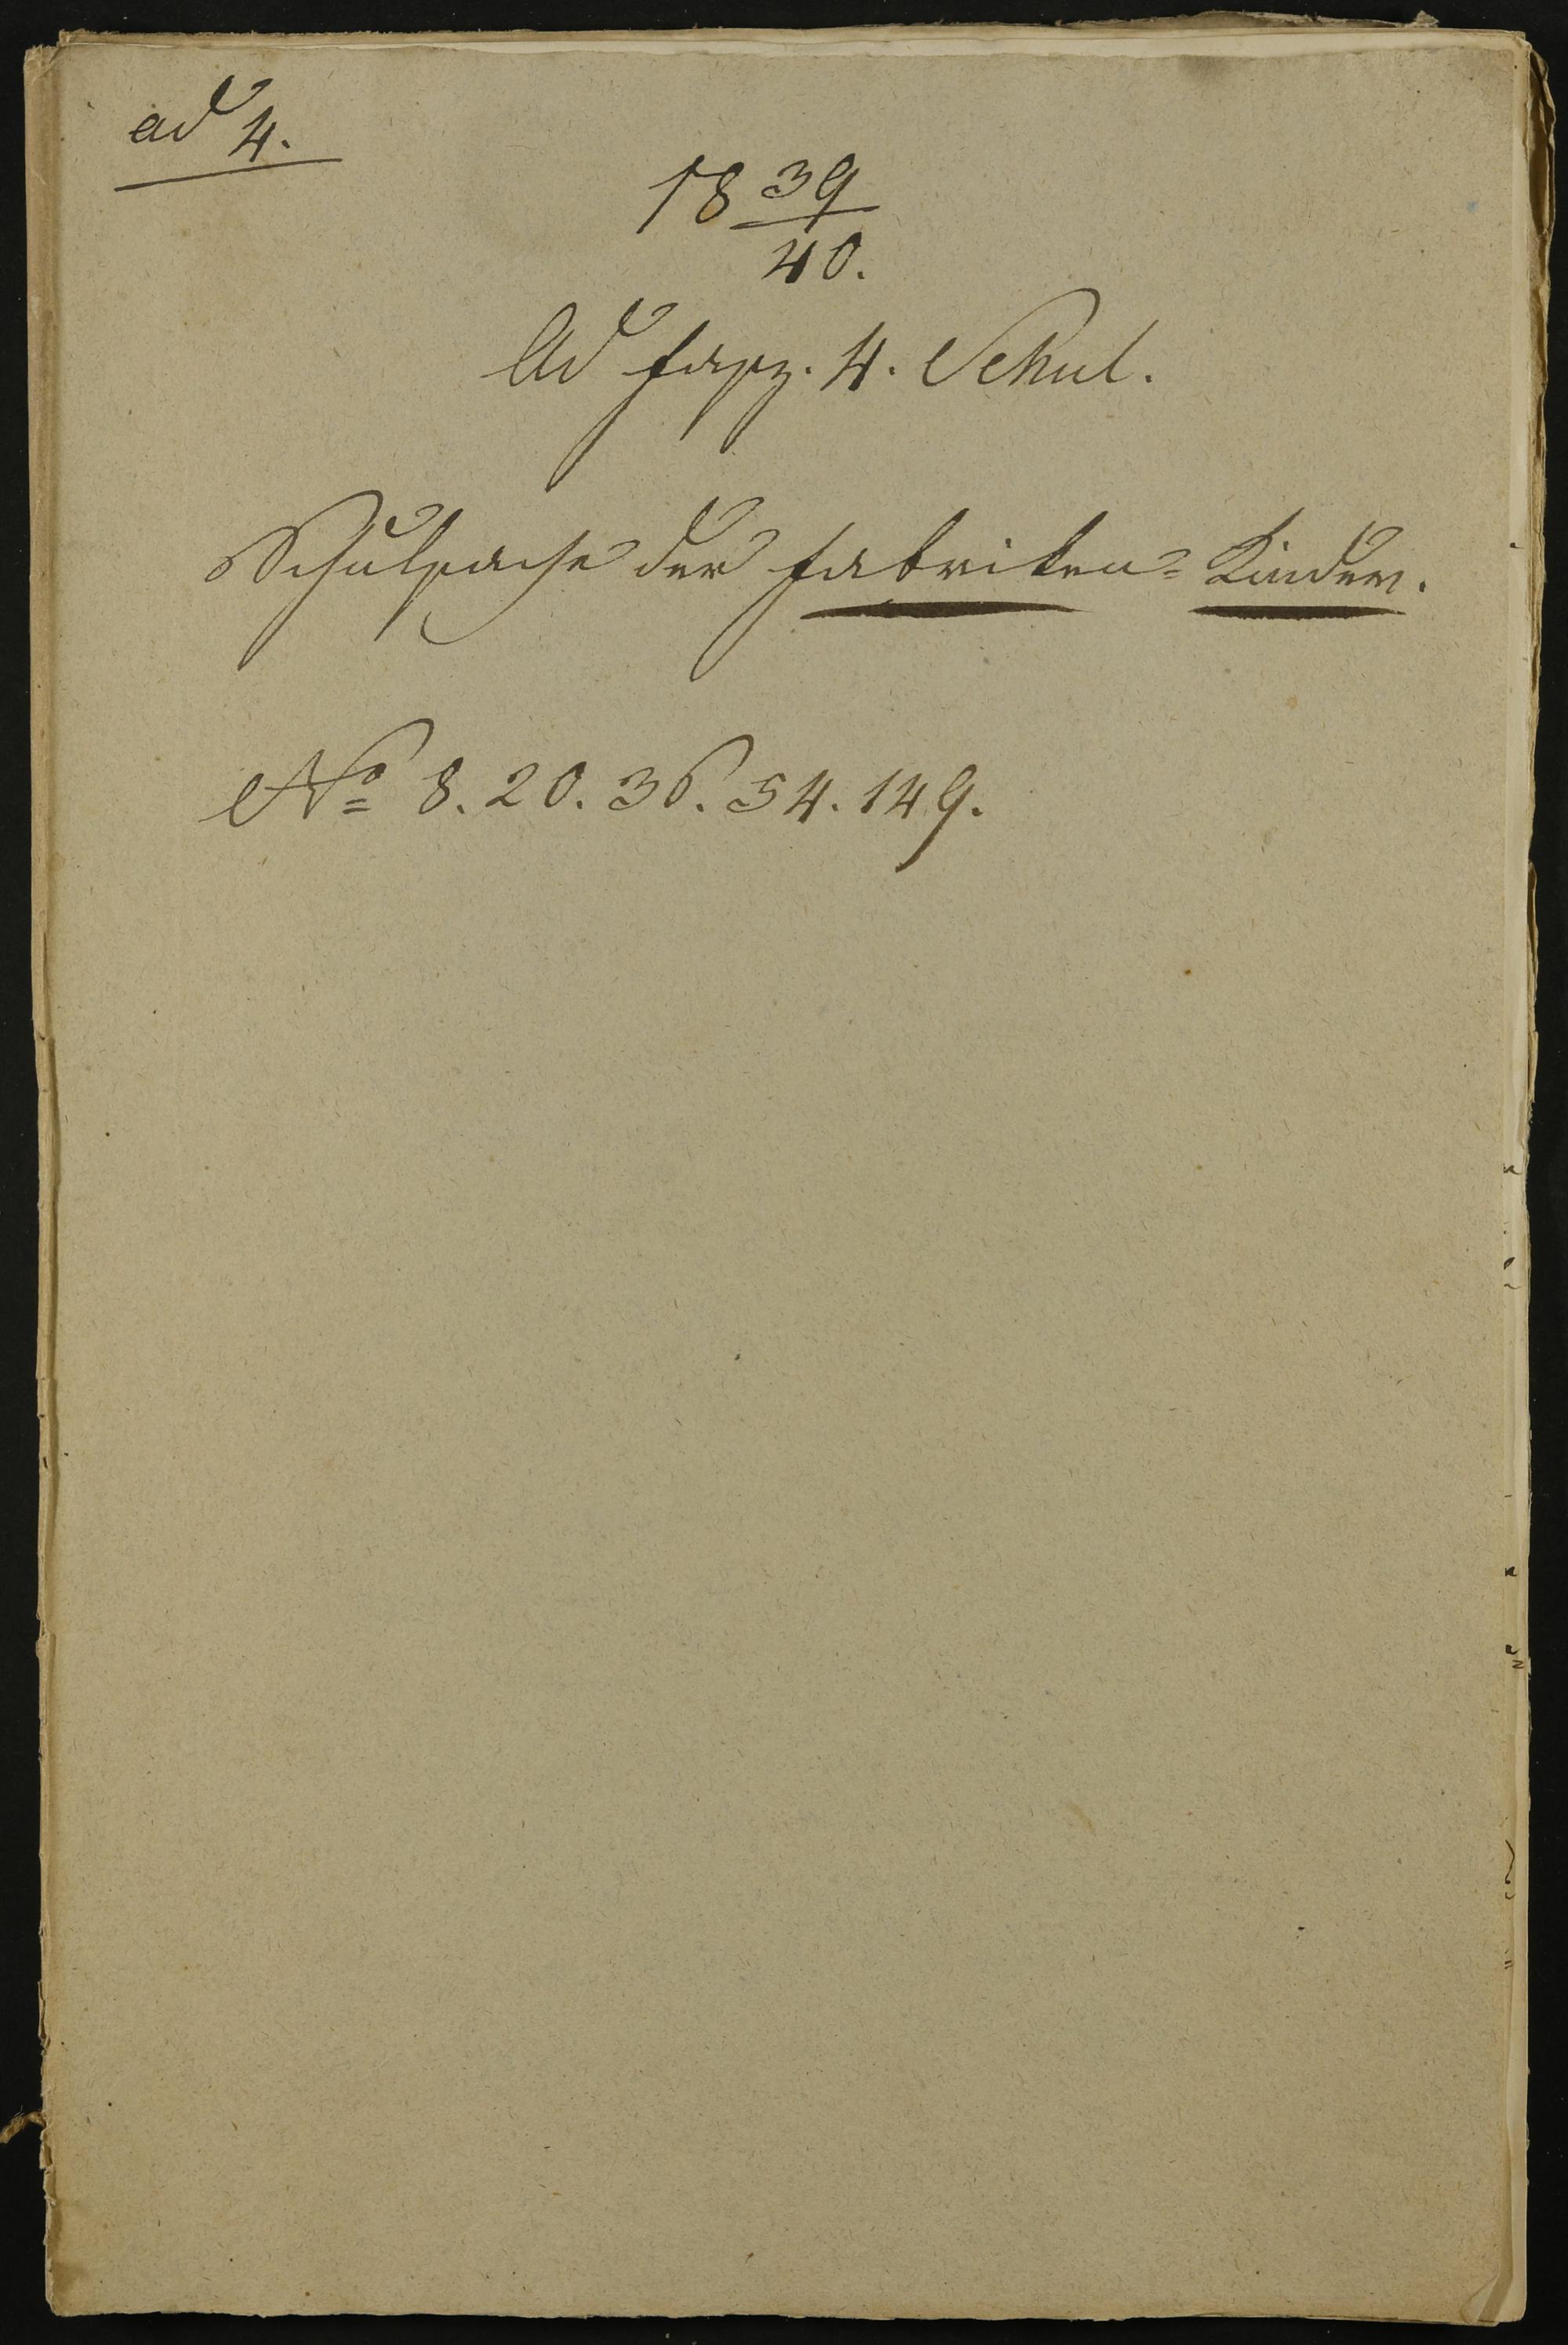 ad 4.
18 39
40.
Ad Fasz. 4. Schul.
Schulsache der Fabriken= Kinder.
No 8. 20. 36. 54. 149.